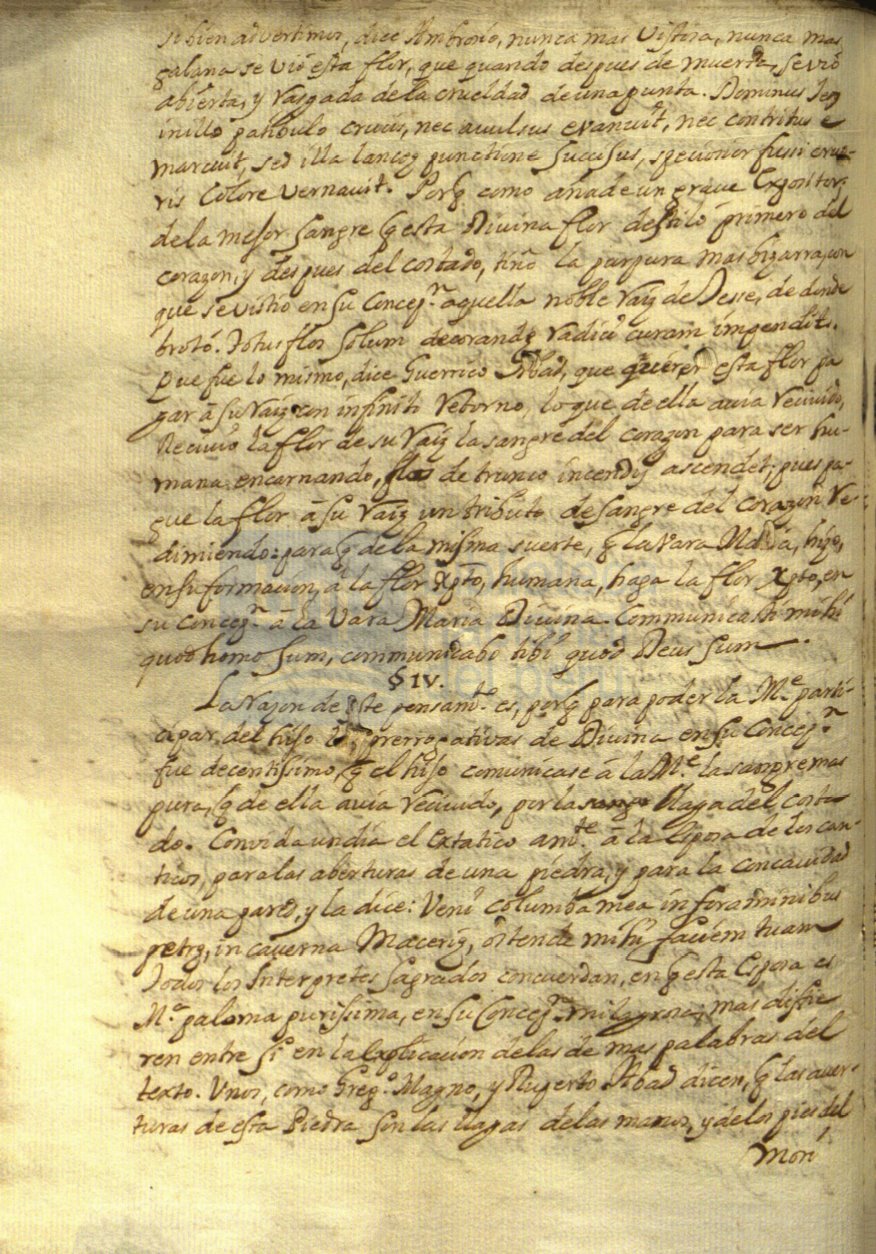 si bien advertimos, dice Ambrosio, nunca mas vistosa, nunca mas
galana se vió esta flor, que quando despues de muerta, se vió
abierta, y rasgada de la crueldad de una punta. Dominus
in illo patibulo crucis, nec avulsus evanuit, nec contritus e
marcuit, sed illa lanceę punctione succisus, speciosior fussi cruo-
ris colore vernauit. Porq̃ como añade un grave Expositor,
de la mejor sangre q̃ esta Divina flor destiló primero del
corazon, y despues del costado, tiñó la purpura mas bizarra, con
que se vistio en su Concepⁿ. aquella noble raiz de Jesse, de donde
brotó. Totus flos solum decorandę radici curam impendit.
Que fue lo mismo, dice Guerrico Abad, que querer esta flor pa
gar á su raiz con infinito retorno, lo que de ella avia recivido,
Recivió la flor de su raiz la sangre del corazon para ser hu-
mana encarnando, flos de trunco incendij ascendet; pues pa-
gue la flor á su raiz un tributo de sangre del corazon re-
dimiendo: para q̃ de la misma suerte, q̃ la vara Maria, hizo,
en su formacion, á la flor Xpto, humana, haga la flor Xpto, en
su Concepⁿ. á la vara Maria Divina. Communicasti mihi
quod homo sum, communicabo tibi quod Deus sum.
§ IV.
La razon de este pensamᵗᵒ. es, porq̃ para poder la Mᵉ. parti-
cipar del hijo prerrogativas de Divina en su Concepⁿ
fue decentissimo, q̃ el hijo comunicase á la Mᵉ. la sangre mas
pura, q̃ de ella avia recivido, por la sangre llaga del costa
do. Convida un dia el extatico amᵗᵉ. á la Esposa de los can-
ticos, para las aberturas de una piedra, y para la concavidad
de una pared, y la dice: Veni columba mea in foraminibus
petrę, in caverna macerię, ostende mihi faciem tuam
Todos los Interpretes sagrados concuerdan, en q̃ esta Esposa es
Mᵃ. paloma purissima, en su Concepⁿ. milagrosa; mas difie
ren entre si en la explicacion de las de mas palabras del
texto. Unos, como Gregᵒ. Magno, y Ruperto Abad dicen, q̃ las aver-
turas de esta Piedra son las llagas de las manos, y de los pies del
Mori